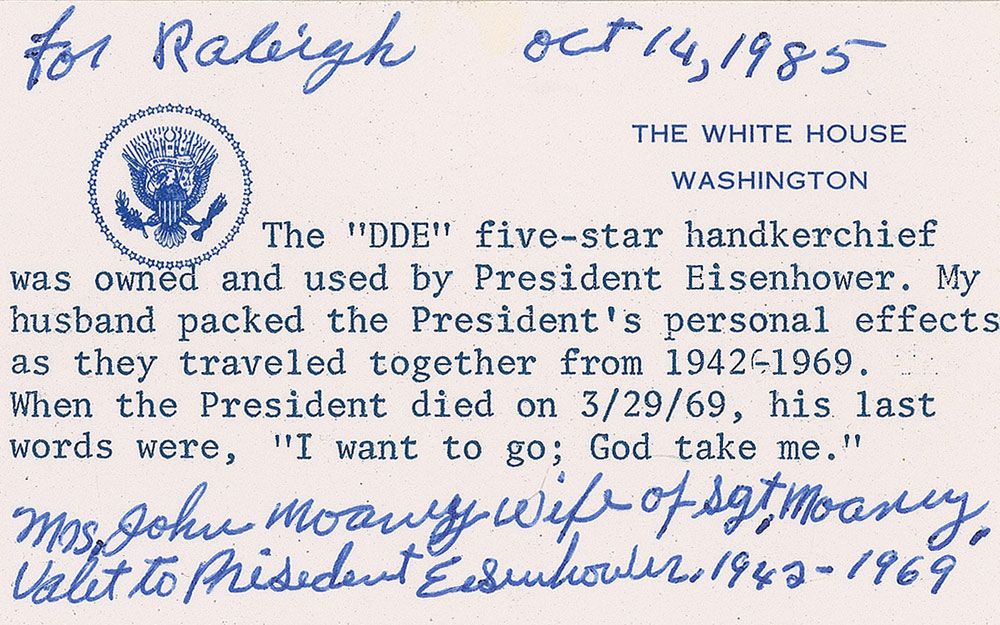 for Raleigh oct 14, 1985
E PLURIBUS UNUM
THE WHITE HOUSE
WASHINGTON
The "DDE" five-star handkerchief
was owned and used by President Eisenhower. My
husband packed the President's personal effects
as they traveled together from 1942-1969.
When the President died on 3/29/69, his last
words were, "I want to go; God take me."
Mrs. John Moaney wife of Sgt. Moaney,
Valet to President Eisenhower. 1942-1969